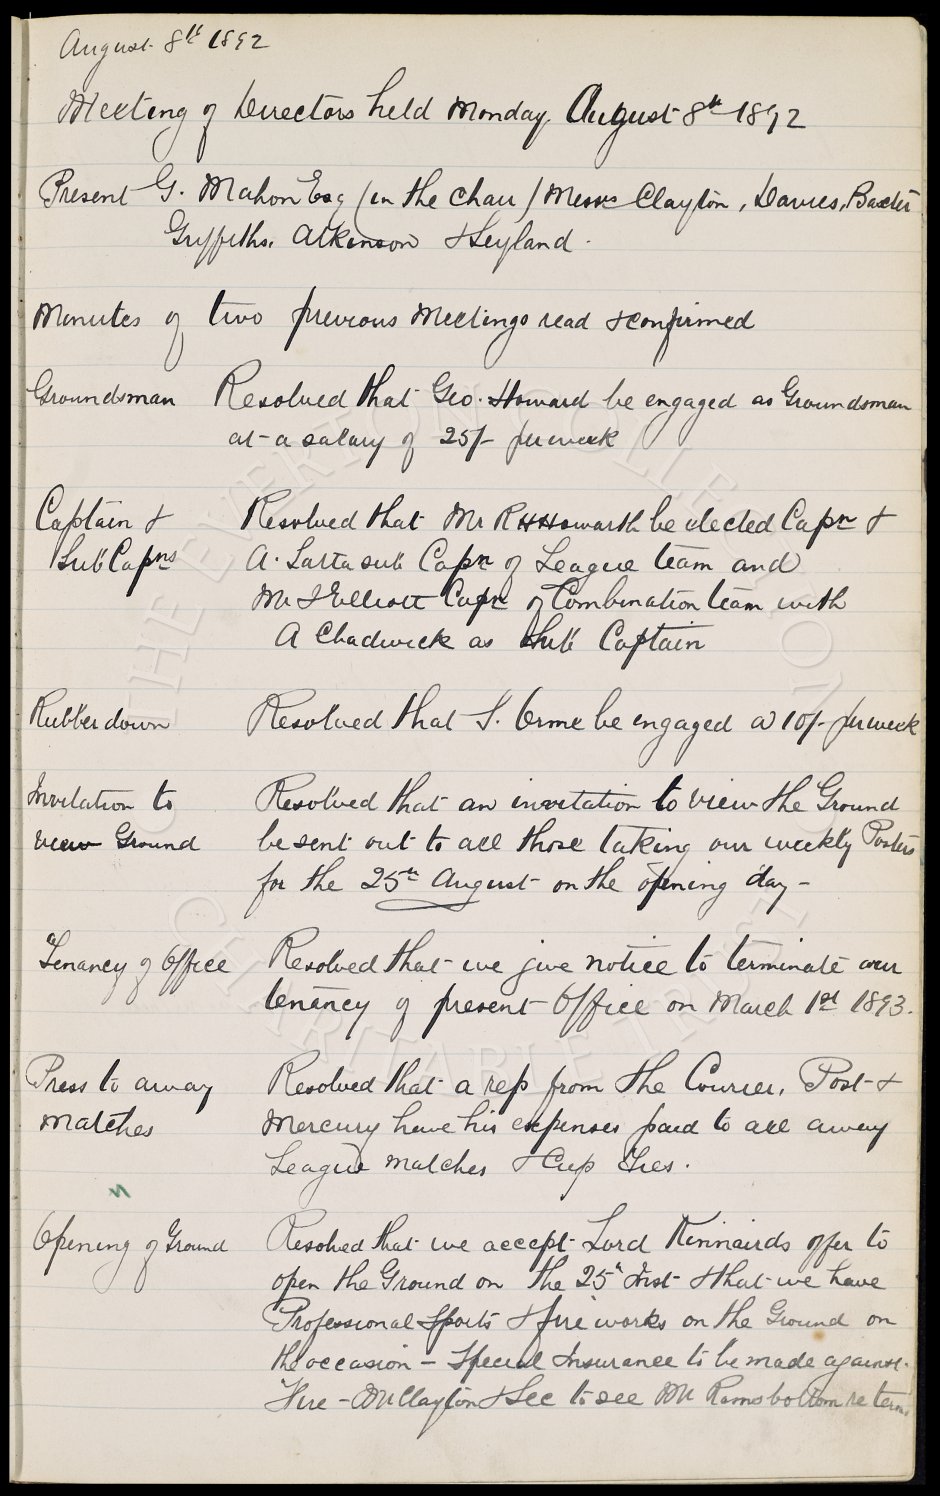 August 8th 1892
Meeting of Directors held Monday August 8th 1892
Present G. Mahon Esq (in the chair) Messrs Clayton, Davies, Baxter
Griffiths, Atkinson & Leyland.
Minutes of two previous Meetings read & confirmed
Groundsman Resolved that Geo. Howard be engaged as Groundsman
at a salary of 25/- per week
Captain & Resolved that Mr R H Howarth be elected Capn &
Sub Capns A. Latta sub Capn of League team and
Mr J Elliott Capn of Combination team with
A Chadwick as Sub Captain
Rubber down Resolved that J. Orme be engaged @ 10/- per week
Invitation to Resolved that an invitation to view the Ground
view Ground be sent out to all those taking our weekly Posters
for the 25th August on the opening day -
Tenancy of Office Resolved that we give notice to terminate our
tenancy of present Office on March 1st 1893.
Press to away Resolved that a rep from the Courier, Post &
Matches Mercury have his expenses paid to all away
League matches & Cup Ties.
Opening of Ground Resolved that we accept Lord Kinnairds offer to
open the Ground on the 25th Inst & that we have
Professional Sports & fire works on the Ground on
the occasion - Special Insurance to be made against
Fire - Mr Clayton & Sec to see Mr Ramsbottom re terms
THE EVERTON COLLECTION
CHARITABLE TRUST